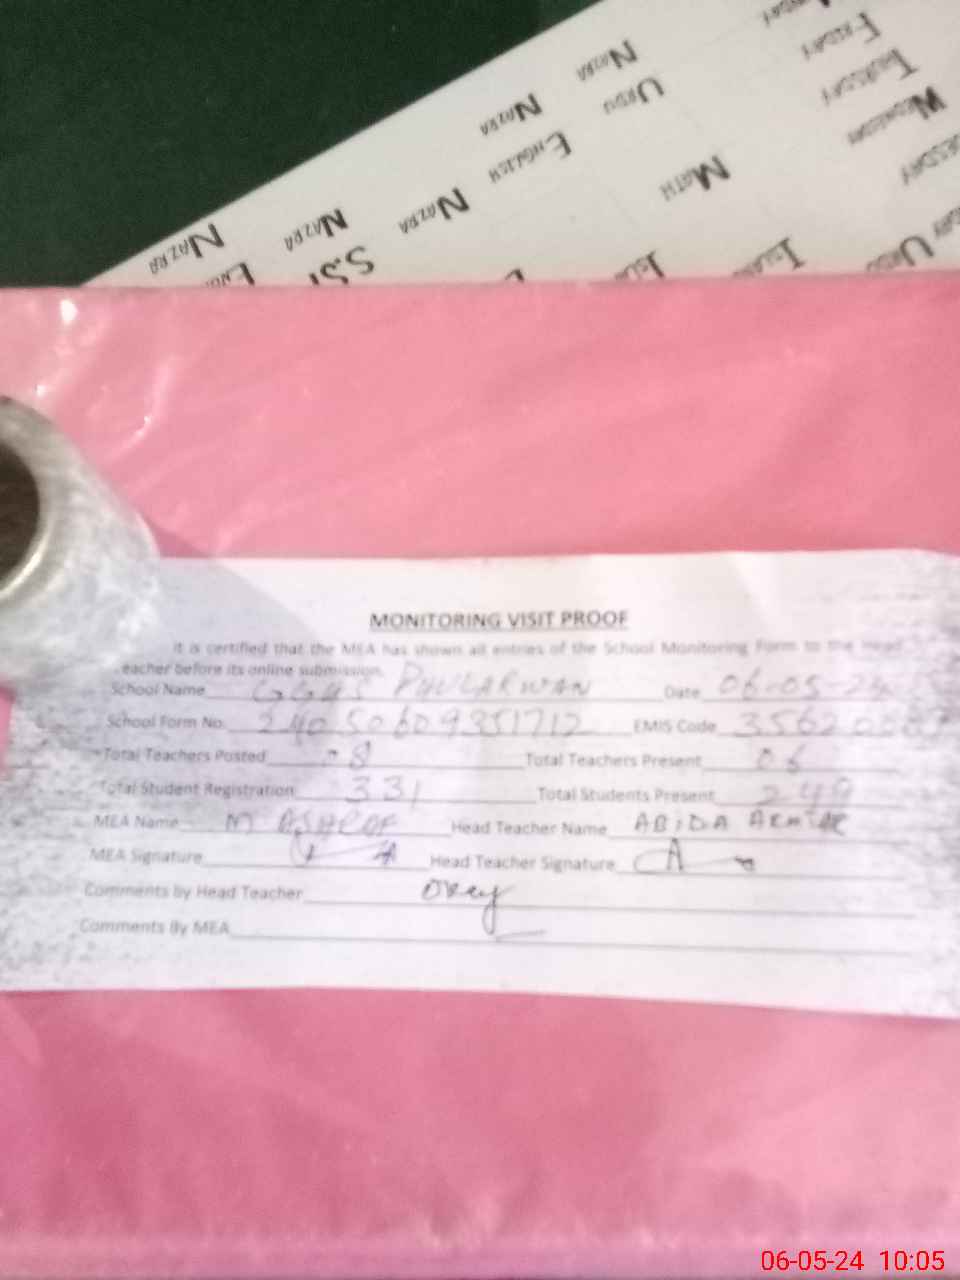 FRIDAY
THURSDAY
WEDNESDAY
NAZRA
URDU
NAZRA
ENGLISH
MATH
NAZRA
NAZRA
NAZRA
MONITORING VISIT PROOF
It is certified that the MEA has shown all entries of the School Monitoring Form to the Head
Teacher before its online submission.
School Name GGHS PHULARWAN Date 06-05-24
School Form No. 240506093517 12 EMIS Code
Total Teachers Posted 8 Total Teachers Present 06
Total Student Registration 331 Total Students Present 249
MEA Name M ASHROF Head Teacher Name ABIDA
MEA Signature Head Teacher Signature
Comments by Head Teacher Okey
Comments By MEA
06-05-24 10:05